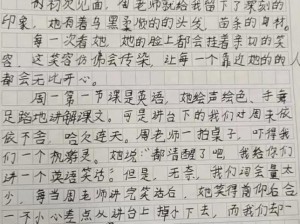 初次见面，周老师就给我留下了深刻的
印象。她有着乌黑柔顺的头发，苗条的身材。
每一次看她，她的脸上都会挂着亲切的笑
容，这笑容仿佛会传染，让每一个靠边她的的人
都会无比开心。
周一第一节课是英语，她绘声绘色，手舞
足蹈地讲解课文。可是讲台下的我们对周末依
依不舍，哈欠连天。周老师一拍桌子，吓得我
们一个机激灵。她说：“都清醒了吧，我给你们
讲一个英语笑话？但是，无奈，我们词会量太
少，每当周老师讲完笑话后，她笑得前仰后合
一不小心差点从讲台上掉下去，而我们却一